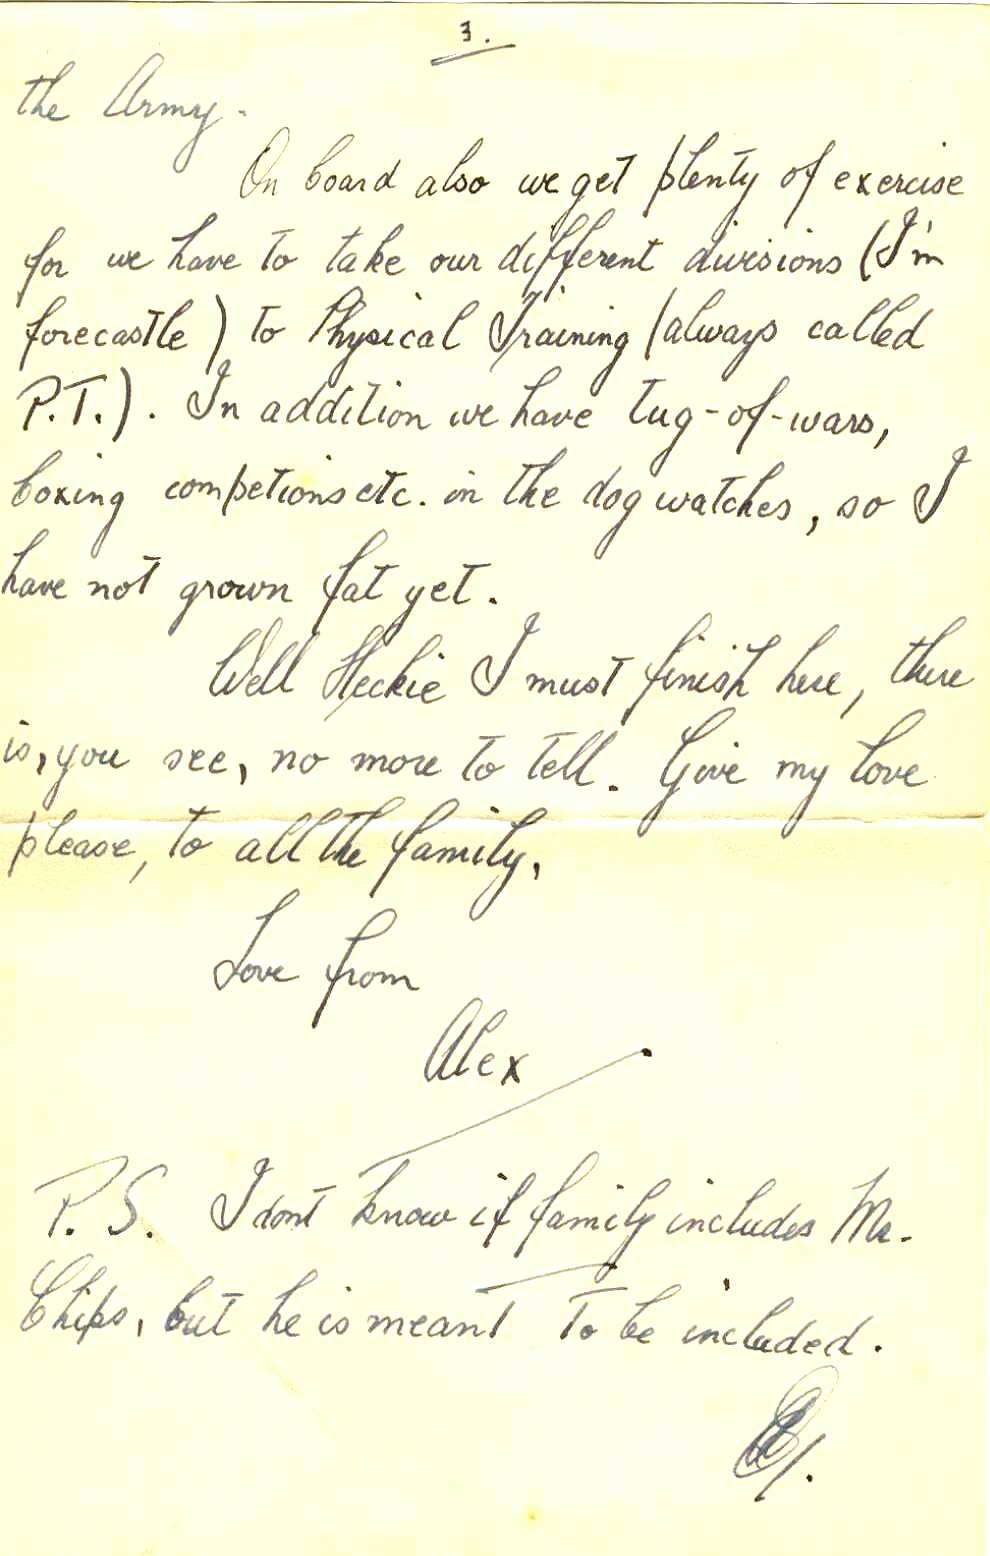 3.
the Army.
On board also we get plenty of exercise
for we have to take our different divisions (I'm
forecastle) to Physical Training (always called
P.T.). In addition we have tug-of-wars,
boxing competions etc. in the dog watches, so I
have not grown fat yet.
Well Heckie I must finish here, there
is, you see, no more to tell. Give my love
please, to all the family.
Love from
Alex
P.S. I dont know if family includes Mr.
Chips, but he is meant to be included.